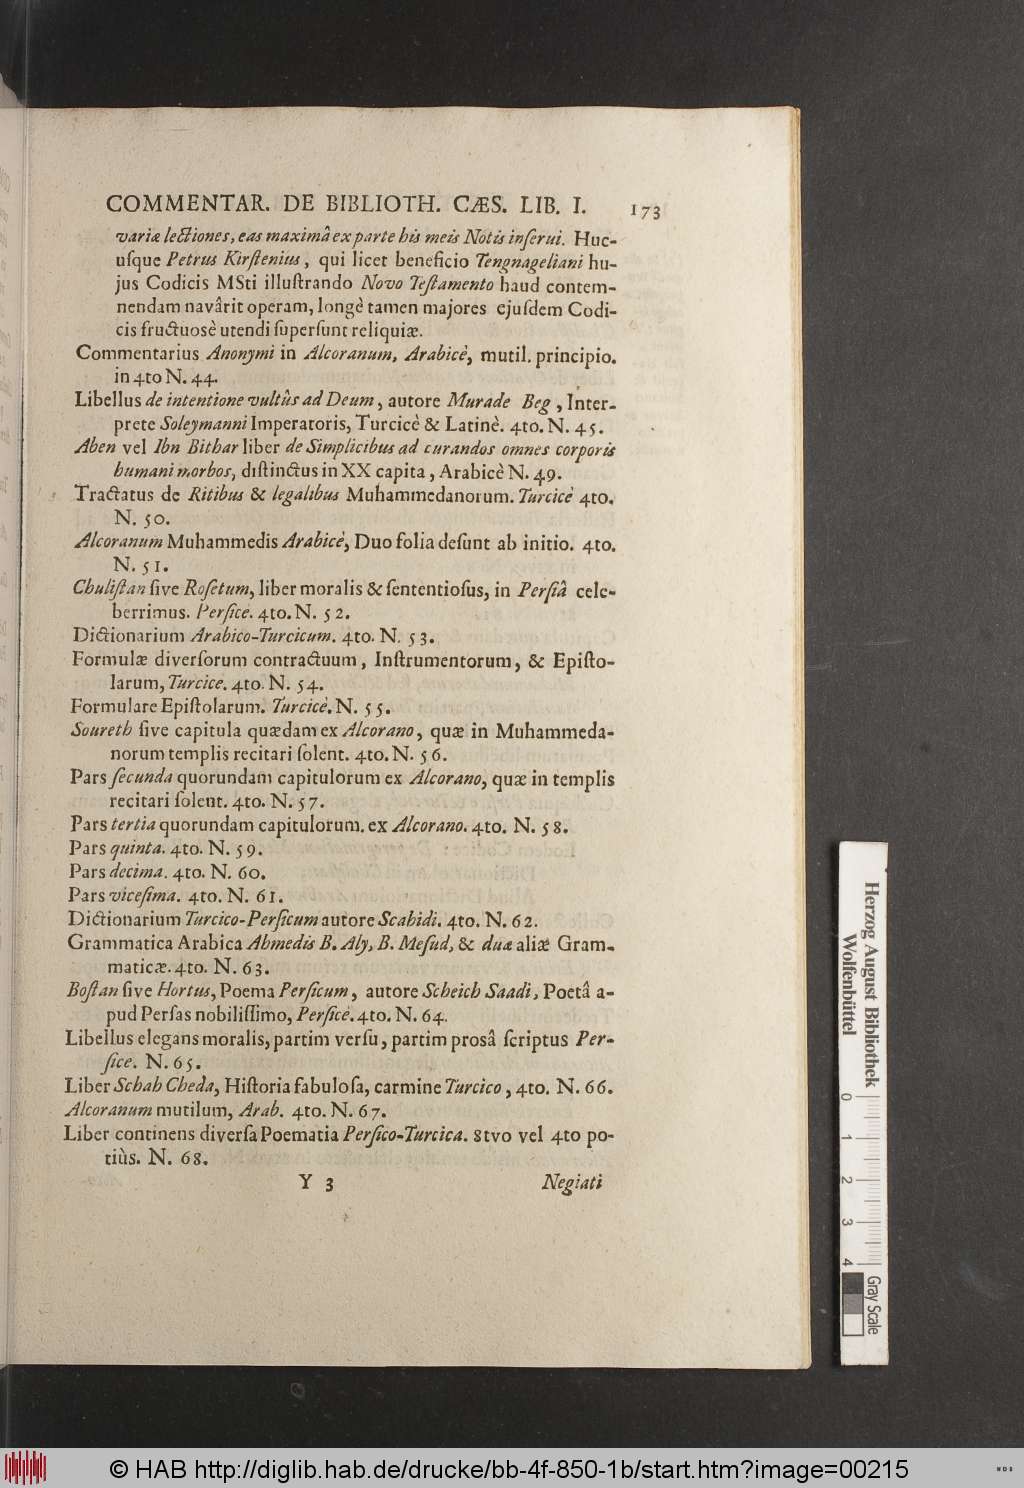 COMMENTAR. DE BIBLIOTH. CÆS. LIB. I. 173
variæ lectiones, eas maximâ ex parte his meis Notis inſerui. Huc-
uſque Petrus Kirſtenius, qui licet beneficio Tengnageliani hu-
jus Codicis MSti illuſtrando Novo Teſtamento haud contem-
nendam navârit operam, longè tamen majores ejuſdem Codi-
cis fructuosè utendi ſuperſunt reliquiæ.
Commentarius Anonymi in Alcoranum, Arabicè, mutil. principio.
in 4to N. 44.
Libellus de intentione vultûs ad Deum, autore Murade Beg, Inter-
prete Soleymanni Imperatoris, Turcicè & Latinè. 4to. N. 45.
Aben vel Ibn Bithar liber de Simplicibus ad curandos omnes corporis
humani morbos, diſtinctus in XX capita, Arabicè N. 49.
Tractatus de Ritibus & legalibus Muhammedanorum. Turcicè 4to.
N. 50.
Alcoranum Muhammedis Arabicè, Duo folia deſunt ab initio. 4to.
N. 51.
Chuliſtan ſive Roſetum, liber moralis & ſententioſus, in Perſiâ cele-
berrimus. Perſicè. 4to. N. 52.
Dictionarium Arabico-Turcicum. 4to. N. 53.
Formulæ diverſorum contractuum, Inſtrumentorum, & Epiſto-
larum, Turcice. 4to. N. 54.
Formulare Epiſtolarum. Turcicè. N. 55.
Soureth ſive capitula quædam ex Alcorano, quæ in Muhammeda-
norum templis recitari ſolent. 4to. N. 56.
Pars ſecunda quorundam capitulorum ex Alcorano, quæ in templis
recitari ſolent. 4to. N. 57.
Pars tertia quorundam capitulorum. ex Alcorano. 4to. N. 58.
Pars quinta. 4to. N. 59.
Pars decima. 4to. N. 60.
Pars viceſima. 4to. N. 61.
Dictionarium Turcico-Perſicum autore Scahidi. 4to. N. 62.
Grammatica Arabica Ahmedis B. Aly, B. Meſud, & duæ aliæ Gram-
maticæ. 4to. N. 63.
Boſtan ſive Hortus, Poema Perſicum, autore Scheich Saadi, Poetâ a-
pud Perſas nobiliſſimo, Perſicè. 4to. N. 64.
Libellus elegans moralis, partim verſu, partim prosâ ſcriptus Per-
ſice. N. 65.
Liber Schah Cheda, Hiſtoria fabuloſa, carmine Turcico, 4to. N. 66.
Alcoranum mutilum, Arab. 4to. N. 67.
Liber continens diverſa Poematia Perſico-Turcica. 8tvo vel 4to po-
tiùs. N. 68.
Y 3 Negiati
Herzog August Bibliothek
Wolfenbüttel
0 1 2 3 4
Gray Scale
© HAB http://diglib.hab.de/drucke/bb-4f-850-1b/start.htm?image=00215